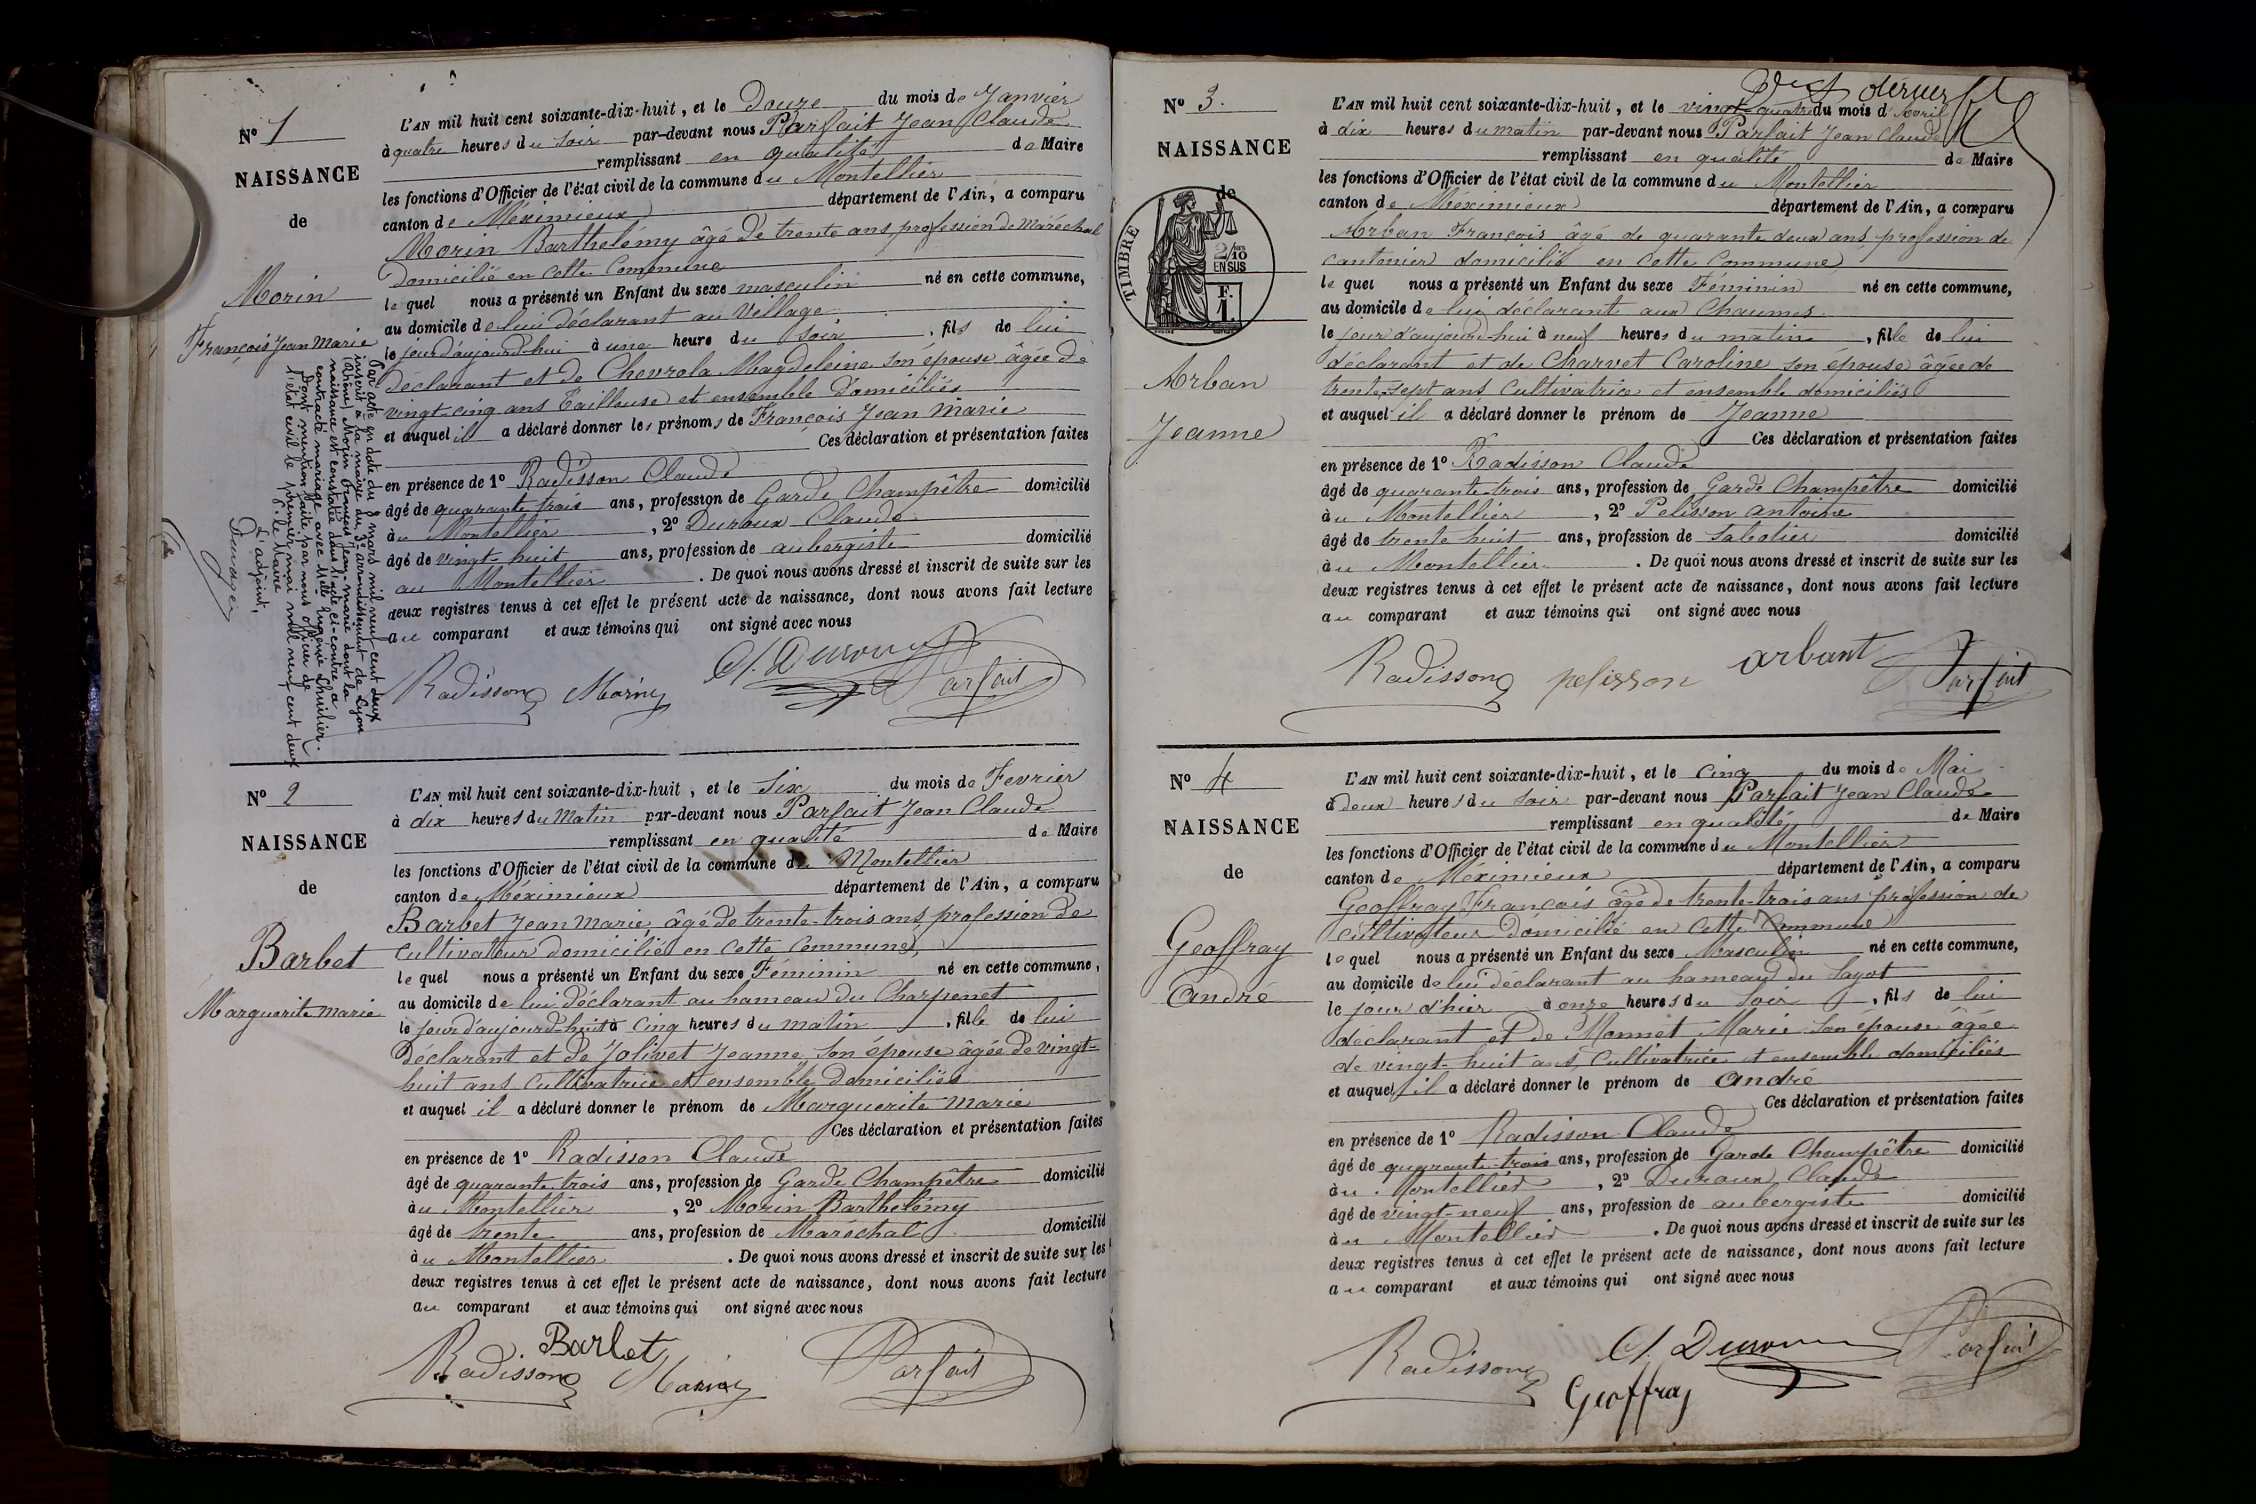 N° 1
NAISSANCE
de
Morin
François Jean Marie
L'AN mil huit cent soixante-dix-huit, et le Douze du mois de Janvier
à quatre heures du Soir par-devant nous Parfait Jean Claude
remplissant en qualité de Maire
les fonctions d'Officier de l'état civil de la commune du Montellier
canton de Méximieux département de l'Ain, a comparu
Morin Barthelémy âgé de trente ans profession de Maréchal
Domicilié en cette Commune
le quel nous a présenté un Enfant du sexe masculin né en cette commune,
au domicile de lui déclarant au Village
le jour d'aujourd'hui à une heure du Soir, fils de lui
déclarant et de Chevrola Magdeleine son épouse âgée de
vingt-cinq ans Tailleuse et ensemble Domiciliés
et auquel il a déclaré donner les prénoms de François Jean Marie
Ces déclaration et présentation faites
en présence de 1° Radisson Claude
âgé de quarante trois ans, profession de Garde Champêtre domicilié
au Montellier, 2° Duroux Claude
âgé de vingt-huit ans, profession de aubergiste domicilié
au Montellier. De quoi nous avons dressé et inscrit de suite sur les
deux registres tenus à cet effet le présent acte de naissance, dont nous avons fait lecture
au comparant et aux témoins qui ont signé avec nous
Radisson Morin Cl. Duroux Parfait
Par acte en date du 8 mars mil neuf cent deux
inscrit à la mairie du 3e arrondissement de Lyon
(Rhône) Morin François Jean-Marie dont la
naissance est constatée dans l'acte ci-contre a
contracté mariage avec Mlle Eugénie
Dont mention faite par nous officier de
l'état civil le premier mai mil neuf cent deux
Pr le Maire
L'adjoint,
N° 2
NAISSANCE
de
Barbet
Marguerite Marie
L'AN mil huit cent soixante-dix-huit, et le Six du mois de Fevrier
à dix heures du Matin par-devant nous Parfait Jean Claude
remplissant en qualité de Maire
les fonctions d'Officier de l'état civil de la commune du Montellier
canton de Méximieux département de l'Ain, a comparu
Barbet Jean Marie, âgé de trente-trois ans, profession de
Cultivateur domicilié en cette Commune,
le quel nous a présenté un Enfant du sexe Féminin né en cette commune,
au domicile de lui déclarant au hameau du Charpenet
le jour d'aujourd'hui à cinq heures du matin, fille de lui
déclarant et de Jolivet Jeanne, son épouse âgée de vingt-
huit ans Cultivatrice et ensemble Domiciliés
et auquel il a déclaré donner le prénom de Marguerite Marie
Ces déclaration et présentation faites
en présence de 1° Radisson Claude
âgé de quarante trois ans, profession de Garde Champêtre domicilié
au Montellier, 2° Morin Barthelémy
âgé de trente ans, profession de Maréchal domicilié
au Montellier. De quoi nous avons dressé et inscrit de suite sur les
deux registres tenus à cet effet le présent acte de naissance, dont nous avons fait lecture
au comparant et aux témoins qui ont signé avec nous
Barbet
Radisson Morin Parfait
N° 3.
NAISSANCE
de
TIMBRE
2/10
EN SUS
F.
1.
Arban
Jeanne
L'AN mil huit cent soixante-dix-huit, et le vingt quatre du mois d'Avril
à dix heures du matin par-devant nous Parfait Jean Claude
remplissant en qualité de Maire
les fonctions d'Officier de l'état civil de la commune du Montellier
canton de Méximieux département de l'Ain, a comparu
Arban François âgé de quarante deux ans, profession de
cantonier domicilié en cette Commune
le quel nous a présenté un Enfant du sexe Féminin né en cette commune,
au domicile de lui déclarant aux Chaumes
le jour d'aujourd'hui à neuf heures du matin, fille de lui
déclarant et de Charvet Caroline son épouse âgée de
trente-sept ans Cultivatrice et ensemble domiciliés
et auquel il a déclaré donner le prénom de Jeanne
Ces déclaration et présentation faites
en présence de 1° Radisson Claude
âgé de quarante-trois ans, profession de Garde Champêtre domicilié
au Montellier, 2° Pelisson antoine
âgé de trente huit ans, profession de Sabotier domicilié
au Montellier. De quoi nous avons dressé et inscrit de suite sur les
deux registres tenus à cet effet le présent acte de naissance, dont nous avons fait lecture
au comparant et aux témoins qui ont signé avec nous
Radisson pelisson arbant Parfait
N° 4
NAISSANCE
de
Geoffray
André
L'AN mil huit cent soixante-dix-huit, et le cinq du mois de Mai
à deux heures du Soir par-devant nous Parfait Jean Claude
remplissant en qualité de Maire
les fonctions d'Officier de l'état civil de la commune du Montellier
canton de Méximieux département de l'Ain, a comparu
Geoffray François âgé de trente-trois ans profession de
cultivateur Domicilié en cette Commune
le quel nous a présenté un Enfant du sexe Masculin né en cette commune,
au domicile de lui déclarant au hameau du Sayot
le jour d'hier à onze heures du Soir, fils de lui
déclarant et de Monnet Marie son épouse âgée
de vingt-huit ans, Cultivatrice et ensemble domiciliés
et auquel il a déclaré donner le prénom de André
Ces déclaration et présentation faites
en présence de 1° Radisson Claude
âgé de quarante-trois ans, profession de Garde Champêtre domicilié
au Montellier, 2° Duroux Claude
âgé de vingt-neuf ans, profession de aubergiste domicilié
au Montellier. De quoi nous avons dressé et inscrit de suite sur les
deux registres tenus à cet effet le présent acte de naissance, dont nous avons fait lecture
au comparant et aux témoins qui ont signé avec nous
Radisson Cl. Duroux Parfait
Geoffray